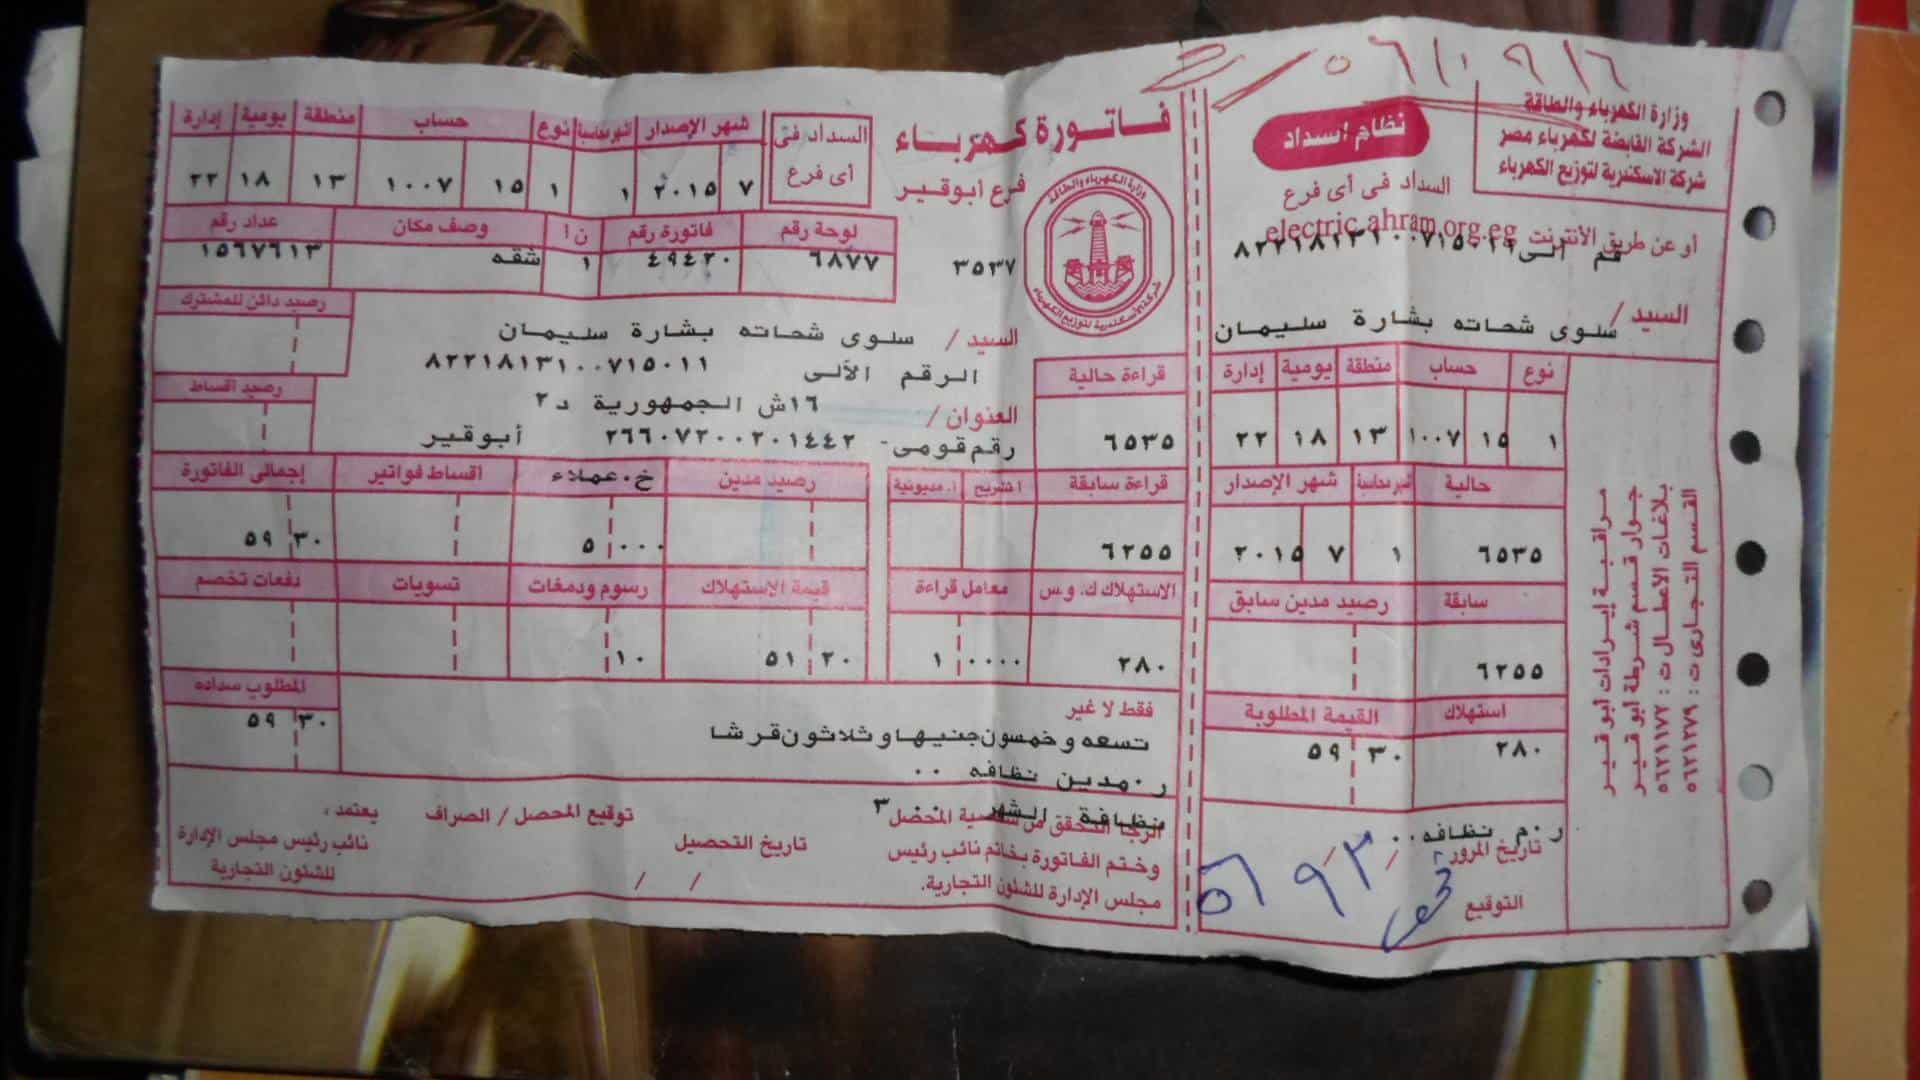 وزارة الكهرباء والطاقة
الشركة القابضة لكهرباء مصر
شركة الاسكندرية لتوزيع الكهرباء
نظام السداد
السداد فى أى فرع
أو عن طريق الأنترنت electric.ahram.org.eg
السيد / سلوى شحاته بشارة سليمان
نوع حساب منطقة يومية إدارة
١ ١٥ ١٠٠٧ ١٣ ١٨ ٢٢
حالية شهر الإصدار
٦٥٣٥ ١ ٧ ٢٠١٥
سابقة رصيد مدين سابق
٦٢٥٥
استهلاك القيمة المطلوبة
٢٨٠ ٣٠ ٥٩
ر.م نظافه ٠٠
تاريخ المرور
التوقيع
مراقبة إيرادات أبو قير
جوار قسم شرطة أبو قير
بلاغات الأعطال ت : ٥٦٢١١٧٢
القسم التجارى ت : ٥٦٢١٢٧٩
فاتورة كهرباء
فرع ابوقير
وزارة الكهرباء والطاقة
شركة الاسكندرية لتوزيع الكهرباء
٣٥٣٧
السداد فى
أى فرع
شهر الإصدار نوع حساب منطقة يومية إدارة
٧ ٢٠١٥ ١ ١ ١٥ ١٠٠٧ ١٣ ١٨ ٢٢
لوحة رقم فاتورة رقم ن أ وصف مكان عداد رقم
٦٨٧٧ ٤٩٤٢٠ ١ شقه ١٥٦٧٦١٣
رصيد دائن للمشترك
السيد / سلوى شحاته بشارة سليمان
الرقم الألى ٨٢٢١٨١٣١٠٠٧١٥٠١١
العنوان / ١٦ش الجمهورية د٢
رقم قومى- ٢٦٦٠٧٢٠٠٢٠١٤٤٢ أبوقير
رصيد اقساط
قراءة حالية
٦٥٣٥
قراءة سابقة أ.تشريح أ.مديونية رصيد مدين خ.عملاء اقساط فواتير إجمالى الفاتورة
٦٢٥٥ ٥ ٠٠٠ ٣٠ ٥٩
الاستهلاك ك.و.س معامل قراءة قيمة الاستهلاك رسوم ودمغات تسويات دفعات تخصم
٢٨٠ ١ ٠٠٠٠ ٢٠ ٥١ ١٠
فقط لا غير
المطلوب سداده
٣٠ ٥٩
تسعه وخمسون جنيها وثلاثون قرشا
ر.مدين نظافه ٠٠
نظافة الشهر ٣
الرجا التحقق من شخصية المحصل
وختم الفاتورة بخاتم نائب رئيس
مجلس الإدارة للشئون التجارية.
تاريخ التحصيل / /
توقيع المحصل / الصراف
يعتمد ،
نائب رئيس مجلس الإدارة
للشئون التجارية